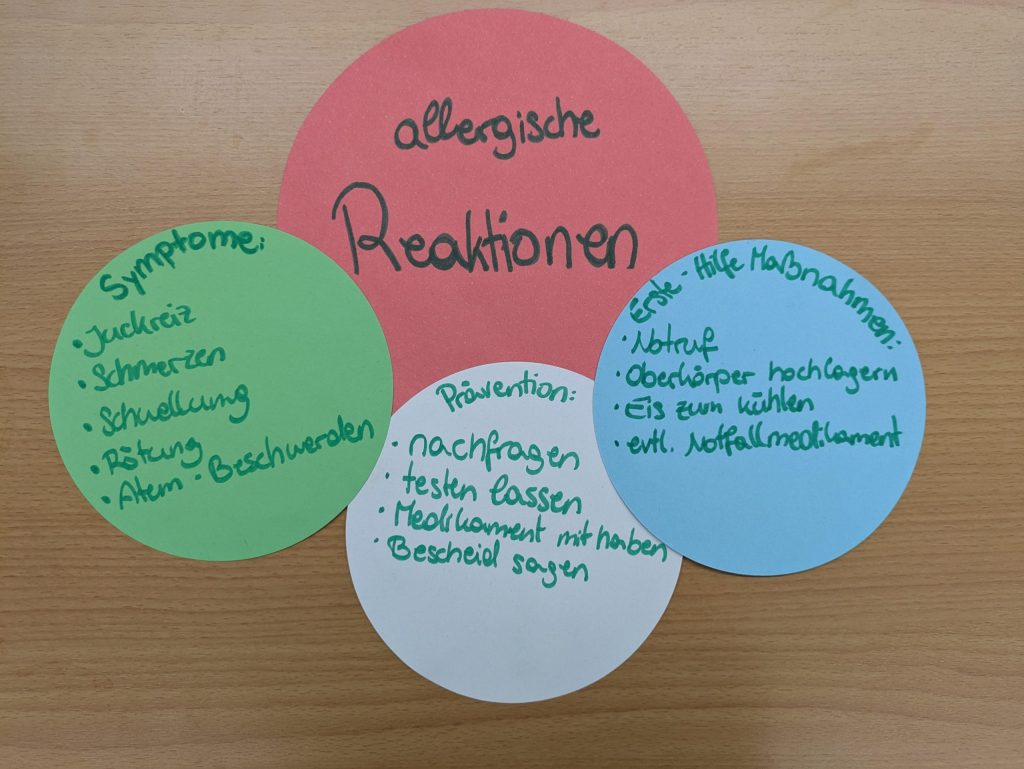 allergische
Reaktionen
Symptome:
• Juckreiz
• Schmerzen
• Schwellung
• Rötung
• Atem - Beschwerden
Prävention:
• nachfragen
• testen lassen
• Medikament mit haben
• Bescheid sagen
Erste - Hilfe Maßnahmen:
• Notruf
• Oberkörper hochlagern
• Eis zum kühlen
• evtl. Notfallmedikament